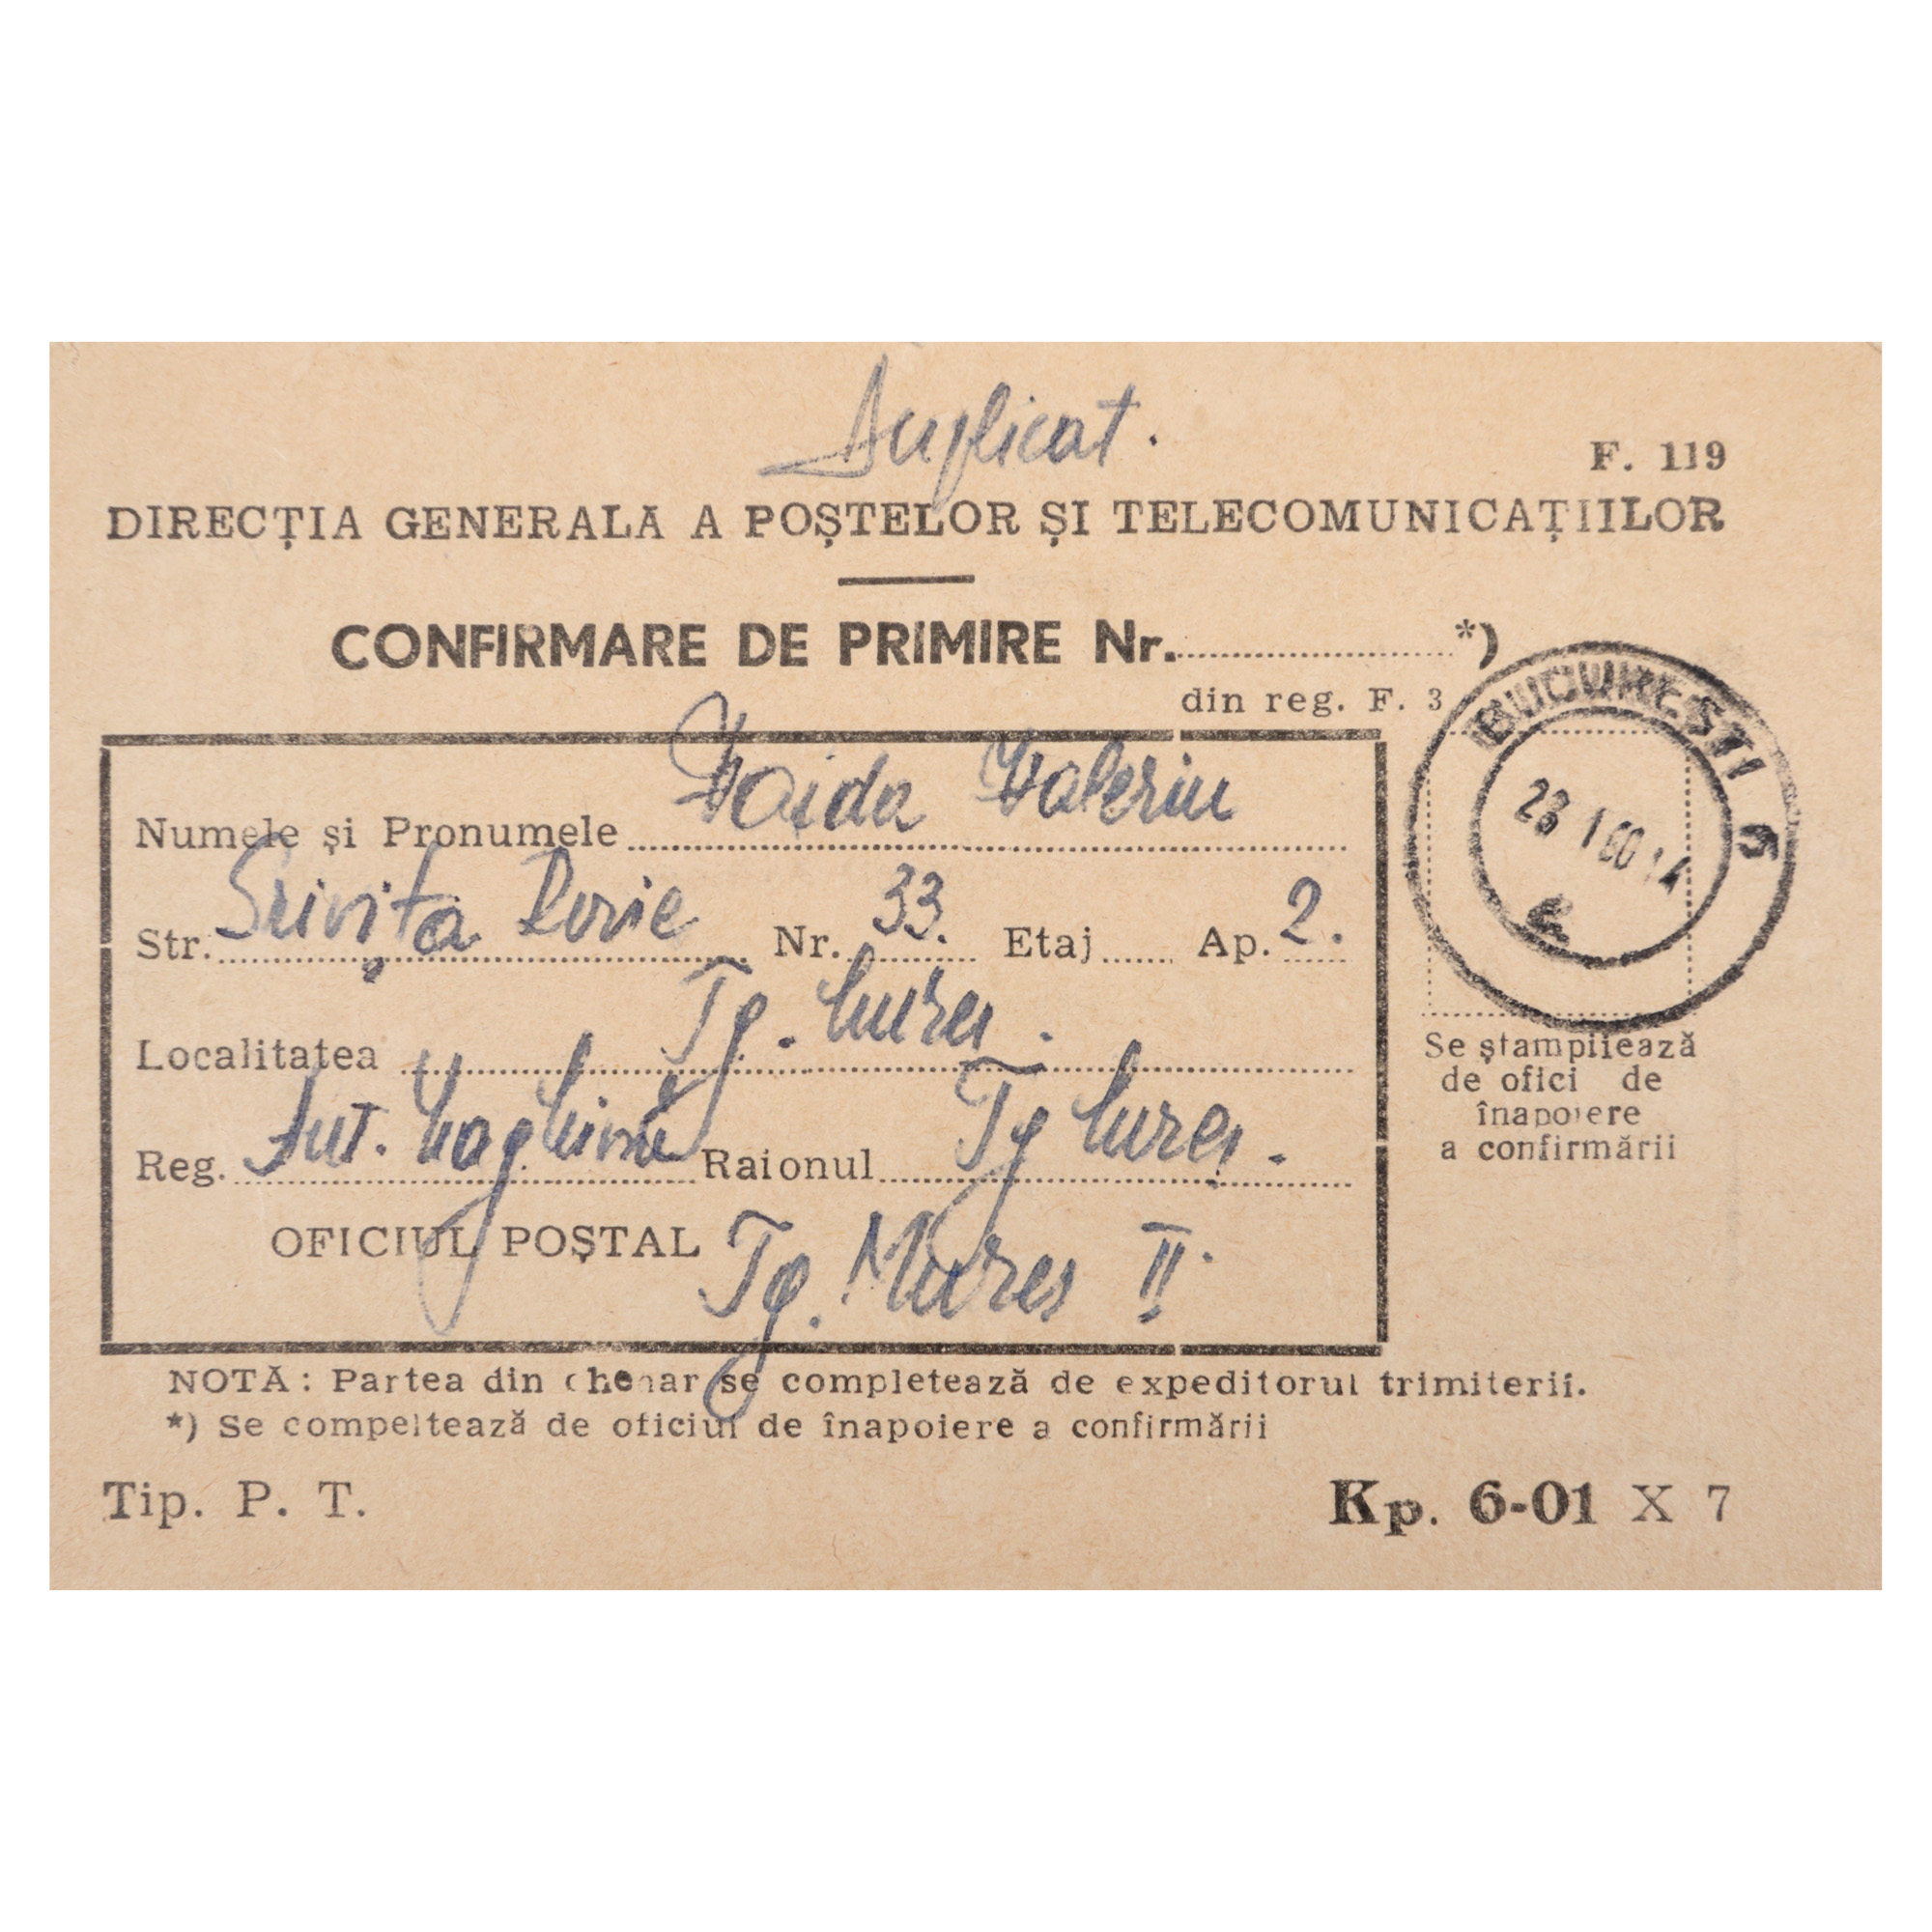 Duplicat.
F. 119
DIRECȚIA GENERALĂ A POȘTELOR ȘI TELECOMUNICAȚIILOR
CONFIRMARE DE PRIMIRE Nr. *)
din reg. F. 3
Numele și Pronumele Vaida Valeriu
Str. Nr. 33. Etaj Ap. 2.
Localitatea Tg. Mureș.
Reg. Aut. Maghiară Raionul Tg Mureș.
OFICIUL POȘTAL Tg. Mureș II.
BUCUREȘTI 6
28 I 60 14
Se ștampilează
de ofici de
înapoiere
a confirmării
NOTĂ: Partea din chenar se completează de expeditorul trimiterii.
*) Se compeltează de oficiul de înapoiere a confirmării
Tip. P. T.
Kp. 6-01 X 7